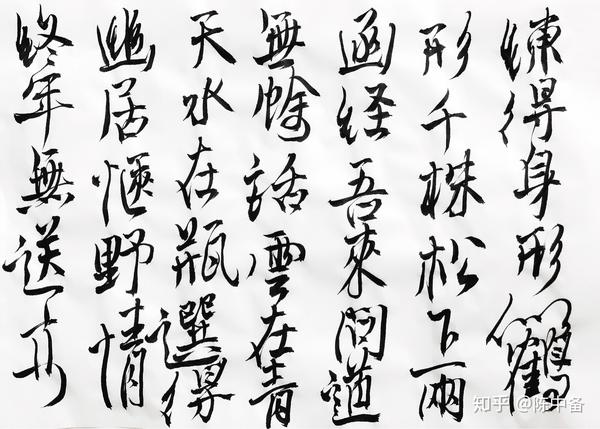 練得身形似鶴
形千株松下兩
函経吾來問道
無餘話雲在青
天水在瓶選得
幽居愜野情
終年無送亦
知乎 @陈中备